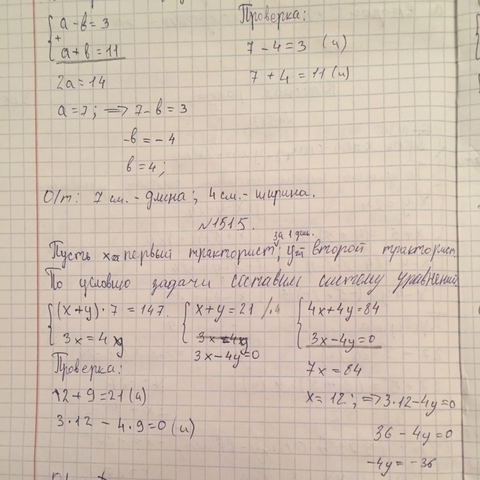 { a - b = 3
+ a + b = 11
2a = 14
a = 7; => 7 - b = 3
-b = -4
b = 4;
Проверка:
7 - 4 = 3 (и)
7 + 4 = 11 (и)
О/т: 7 см. - длина; 4 см. - ширина.
№1515.
Пусть x га первый тракторист, y га второй тракторист за 1 день.
По условию задачи составим систему уравнений
{ (x+y) · 7 = 147. { x + y = 21 /·4 { 4x + 4y = 84
3x = 4y 3x = 4y 3x - 4y = 0
3x - 4y = 0
7x = 84
x = 12; => 3·12 - 4y = 0
36 - 4y = 0
-4y = -36
Проверка:
12 + 9 = 21 (и)
3·12 - 4·9 = 0 (и)